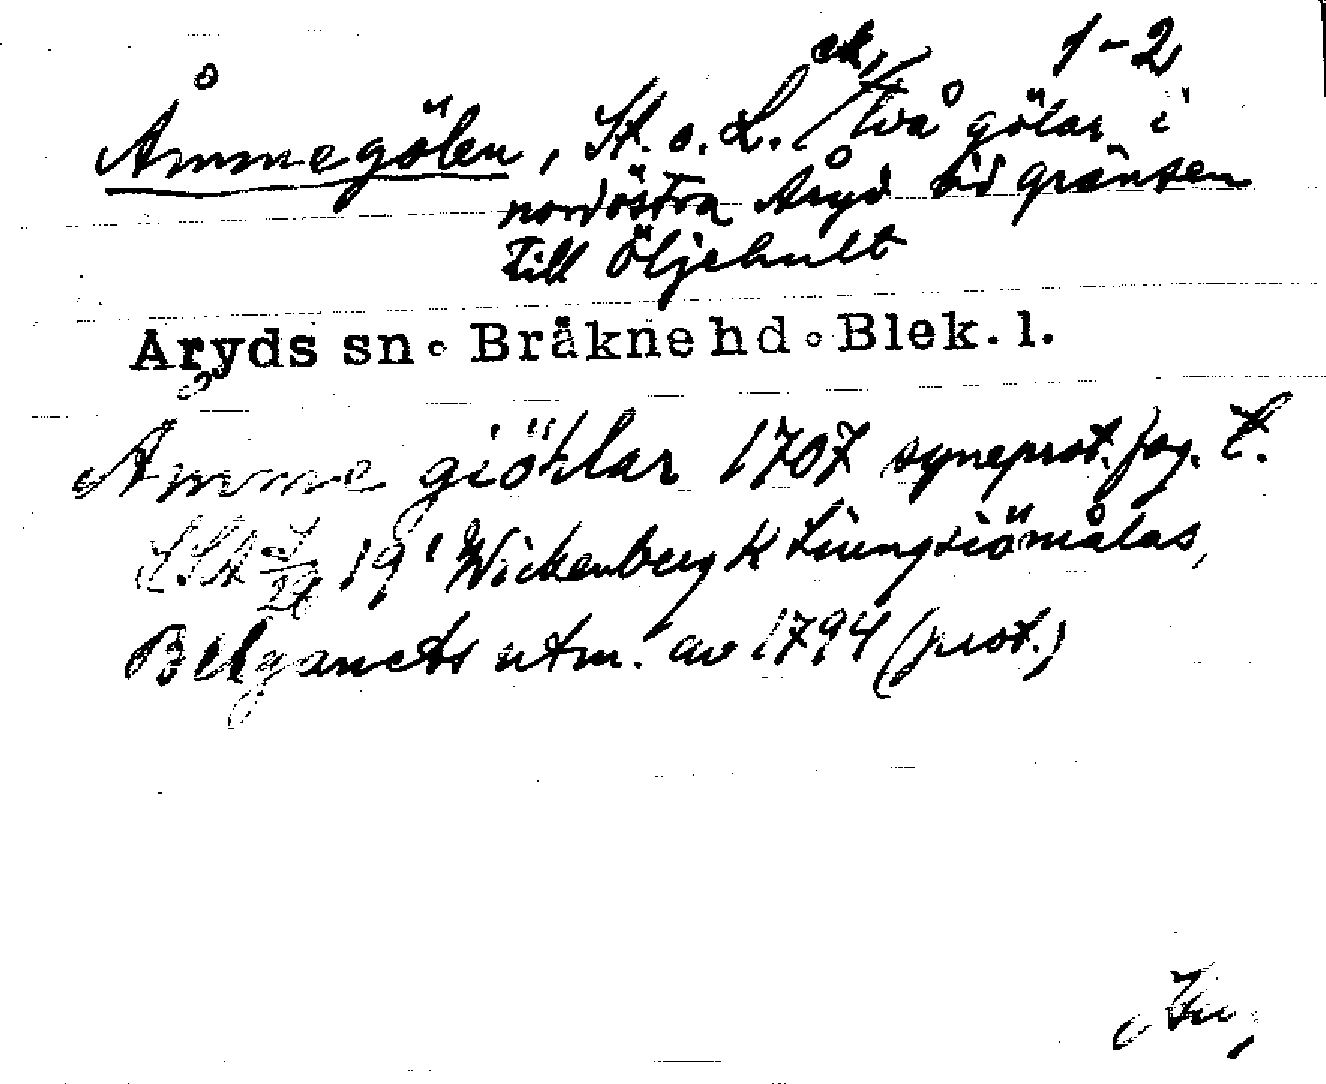 1-2
Åmmegölen, St. o. L. ek, två gölar i
nordöstra Åryd vid gränsen
till Öljehult
Åryds sn. Bräkne hd. Blek. l.
Åmme giöhlar 1707 syneprot. fog. t.
LSA 19' Wickenberg K Liungsiömålas,
Belganets utm. av 1794 (prot.)